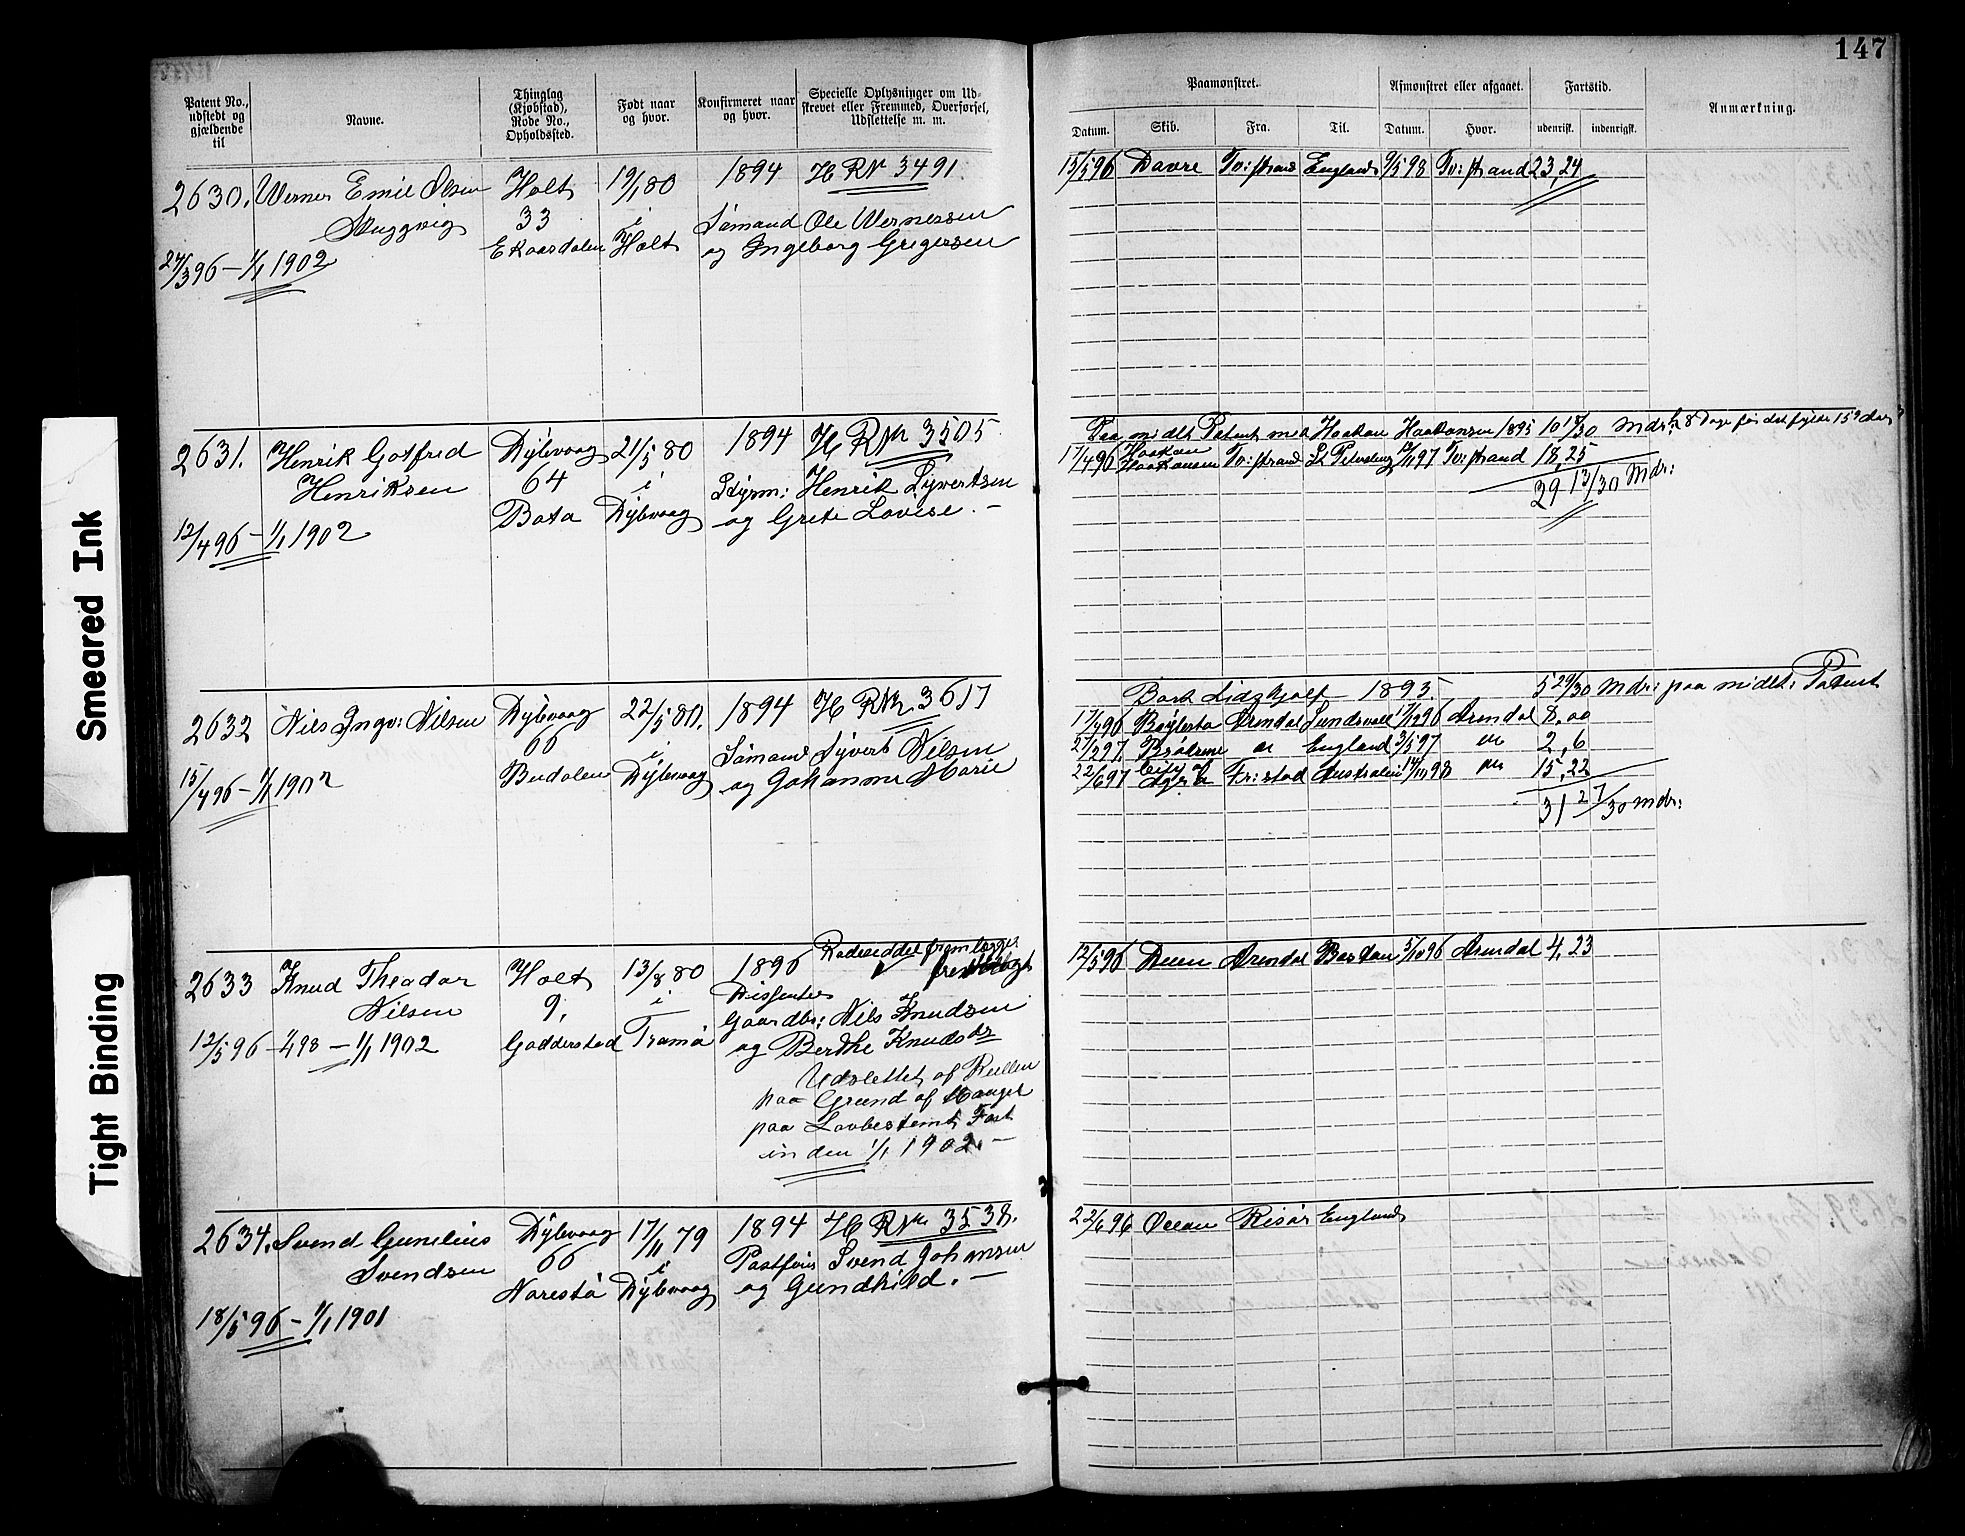 147
Patent No., udstedt og gjældende til
Navne.
Thinglag (Kjøbstad), Rode No., Opholdssted.
Født naar og hvor.
Konfirmeret naar og hvor.
Specielle Oplysninger om Udskrevet eller Fremmed, Overførsel, Udslettelse m. m.
Paamønstret.
Afmønstret eller afgaaet.
Fartstid.
Anmærkning.
Datum. Skib. Fra. Til. Datum. Hvor. udenrisk. indenrigsk.
2630. Werner Emil Olsen Holt 19/1 80 1894 H RNr 3491.
Skuggvig 33 i Sømand Ole Wernersen
Ekaasdalen Holt og Ingeborg Gregersen
24/3 96 – 1/1 1902
15/5 96 Davre Tv:strand England 9/5 98 Tv:strand 23,24
2631. Henrik Gotfred Dybvaag 21/5 80 1894 H RNr 3505
Henriksen 64 i Styrm: Henrik Syvertsen
Bota Dybvaag og Grete Lovise. –
12/4 96 – 1/1 1902
Paa midlt Patent med Haakon Haakonsen 1895 10 18/30 Mdr: 8 Dage før det fyldte 15de Aar
17/4 96 Haakon Haakonsen Tv:strand St Petersburg 97 Tv:strand 18,25
29 13/30 Mdr:
2632 Nils Ingv: Nilsen Dybvaag 22/5 80. 1894 H RNr. 3617
66 i Sømand Syvert Nilsen
Budalen Dybvaag og Johanne Marie
15/4 96 – 1/1 1902
Bark Lidskjalf 1895. 5 29/30 Mdr: paa midlt: Patent
17/4 96 Arendal Sundsvall 17/12 96 Arendal 8.00
27/2 97. Brødrene do England 3/5 97 do 2,6
22/6 97 Fr:stad Australien 14/10 98 do 15,22
31 27/30 Mdr:
2633 Knud Theodor Holt 13/8 80 1896 Rodeseddel fremlægges
fremlagt
Nilsen 9, i Dissenter
Gaardbr: Nils Knudsen
12/5 96 – 498 – 1/1 1902 Godderstad Tromø og Berthe Knudsdr
Udslettet af Rullen
paa Grund af Mangel
paa Lovbestemt Fart
inden 1/1 1902. –
12/5 96 Duen Arendal Bordau 5/10 96 Arendal 4,23
2634. Svend Gunelius Dybvaag 17/11 79 1894 H RNr. 3538.
Svendsen 66 i Postfører Svend Johansen
Narestø Dybvaag og Gundhild. –
18/5 96 – 1/1 1901
22/6 96 Ocean Risør England
Smeared Ink
Tight Binding